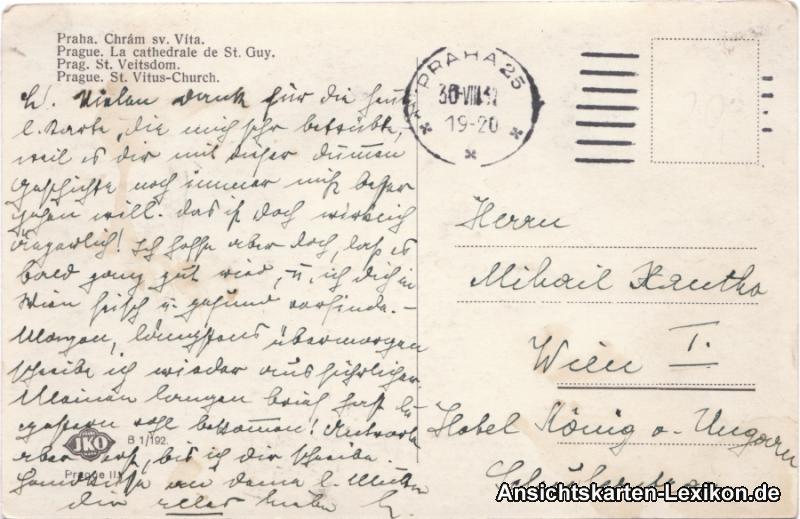 Praha. Chrám sv. Víta.
Prague. La cathedrale de St. Guy.
Prag. St. Veitsdom.
Prague. St. Vitus-Church.
PRAHA 25
30·VIII
19-20
L! Vielen Dank für die heut
l. Karte, die mich sehr betrübte,
weil es dir mit dieser dummen
Geschichte noch immer nicht besser
gehen will. Das ist doch wirklich
ärgerlich! Ich hoffe aber doch, daß es
bald ganz gut wird, u. ich dich in
Wien frisch u. gesund vorfinde. –
Morgen, längstens übermorgen
schreibe ich wieder ausführlicher.
Meinen langen Brief hast du
gestern wohl bekommen! Antworte
aber erst, bis ich dir schreibe.
Handküsse an deine l. Mutter
dir alles
Herrn
Mihail Xantho
Wien I.
Hotel König v. Ungarn
JKO
B 1/192.
Prague II
Ansichtskarten-Lexikon.de